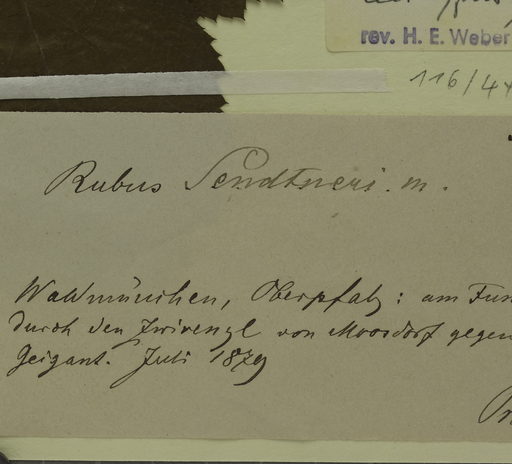 rev. H. E. Weber
116/4
Rubus Sendtneri. m.
Waldmünchen, Oberpfalz: am
durch den Zwirenzl von Moosdorf gegen
Geigant. Juli 1879